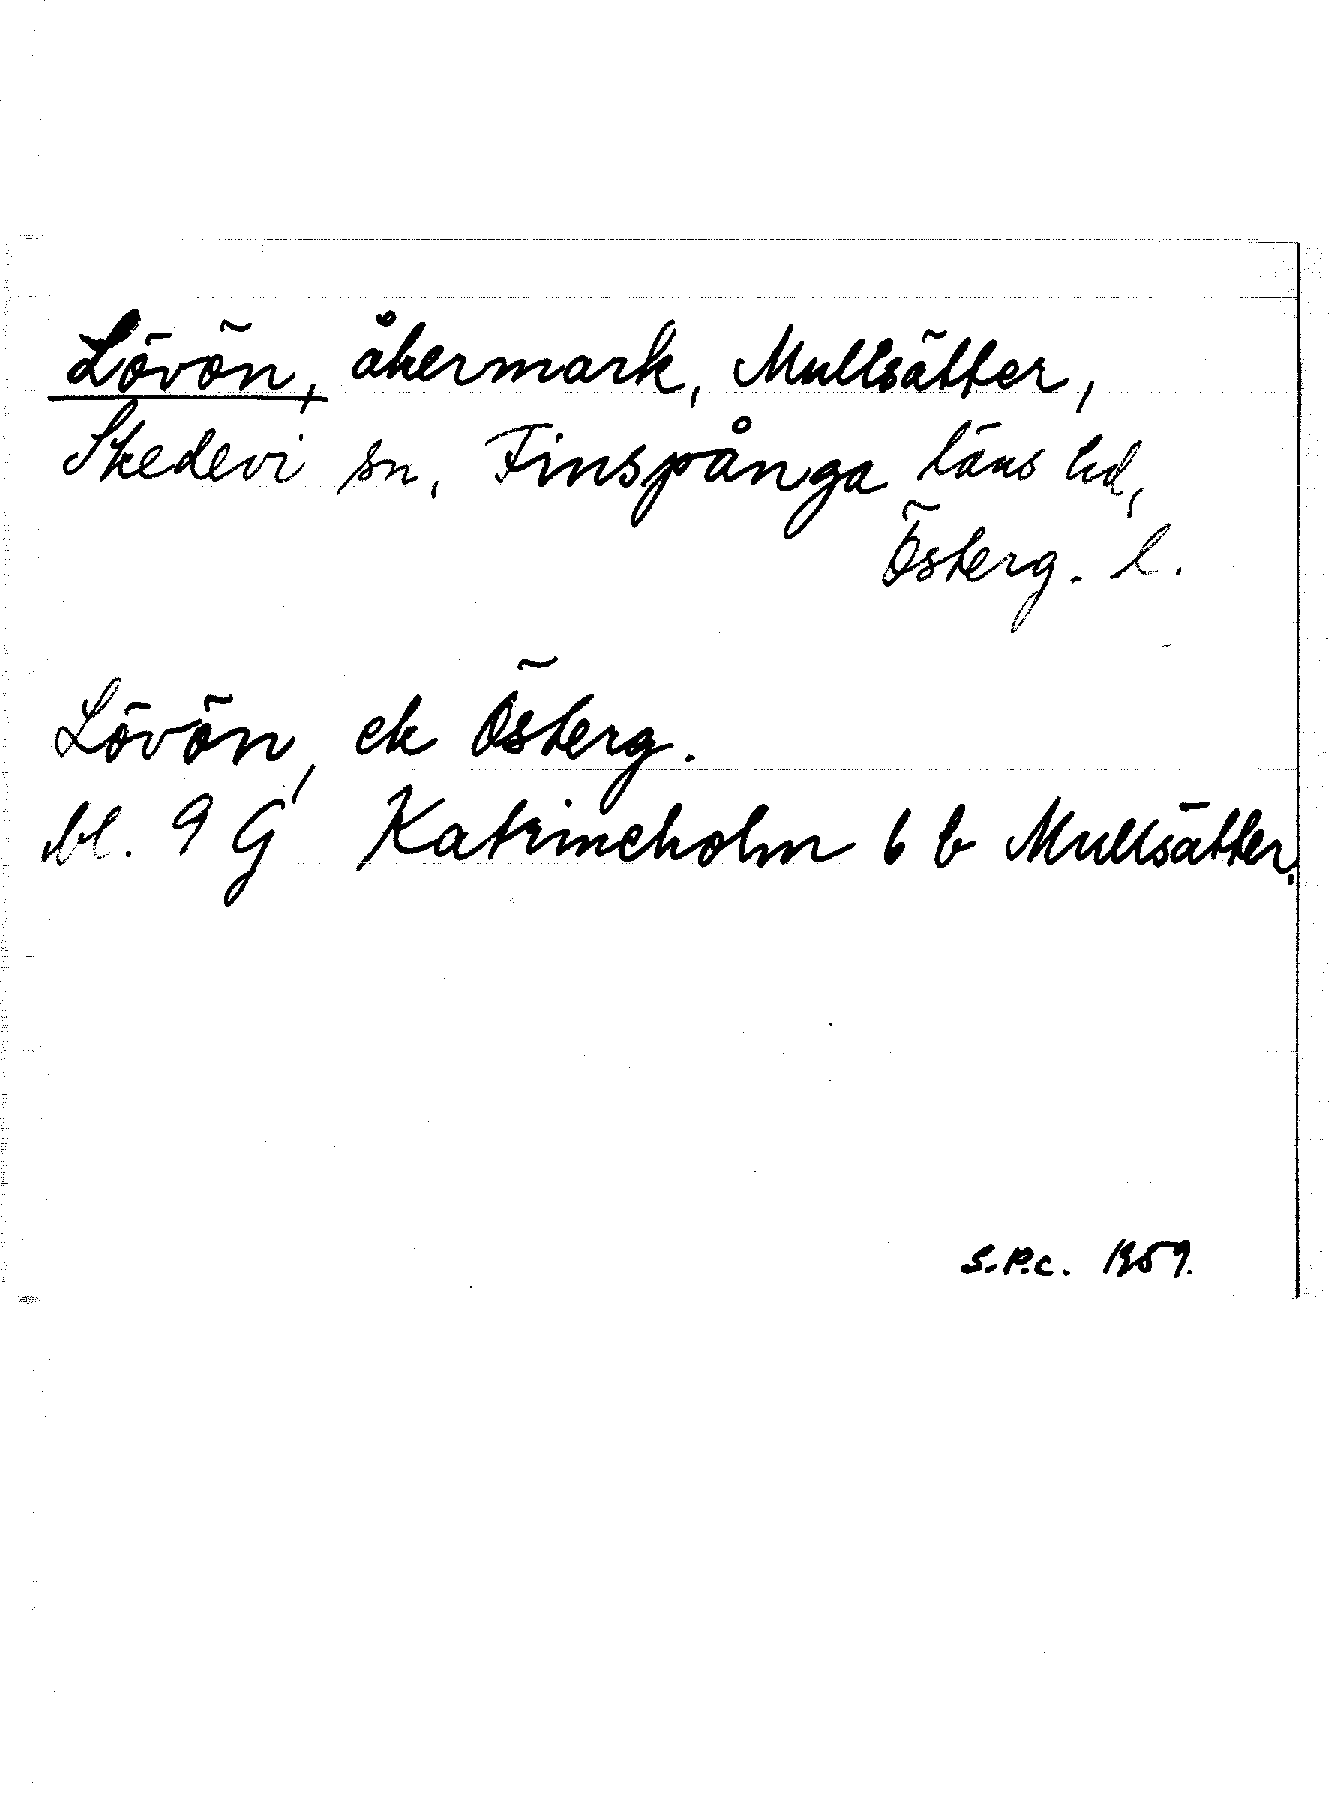 Lövön, åkermark, Mullsätter,
Skedevi sn, Finspånga läns hd,
Österg. l.
Lövön, ek Österg.
bl. 9 G Katrineholm 6 b Mullsätter.
S.P.C. 1959.